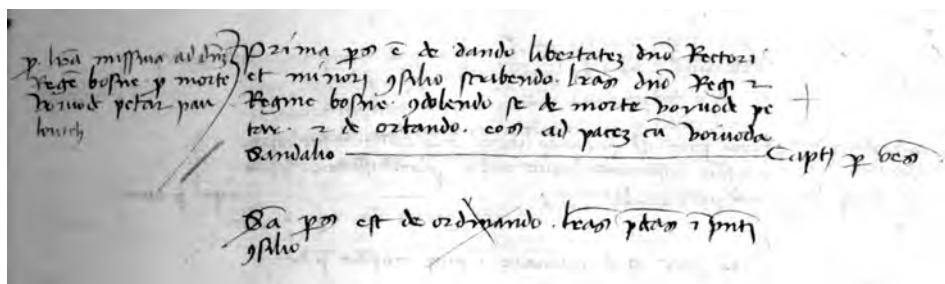 p. lrā missiua ad dnꝫ
Regē bosne p morte
voiuode petar pau
louich
Prima ps ē de dando libertateꝫ dnō Rectori
et minori ꝯsilio scribendo. lrās dnō Regi ⁊
Regine bosne. ꝯdolendo se de morte voiuode pe
tar. ⁊ de ortando. eos ad paceꝫ cū voiuoda
Sandalio Capt p oēs
Sa ps est de ordinando. lrās pdtas ī pnti
ꝯsilio